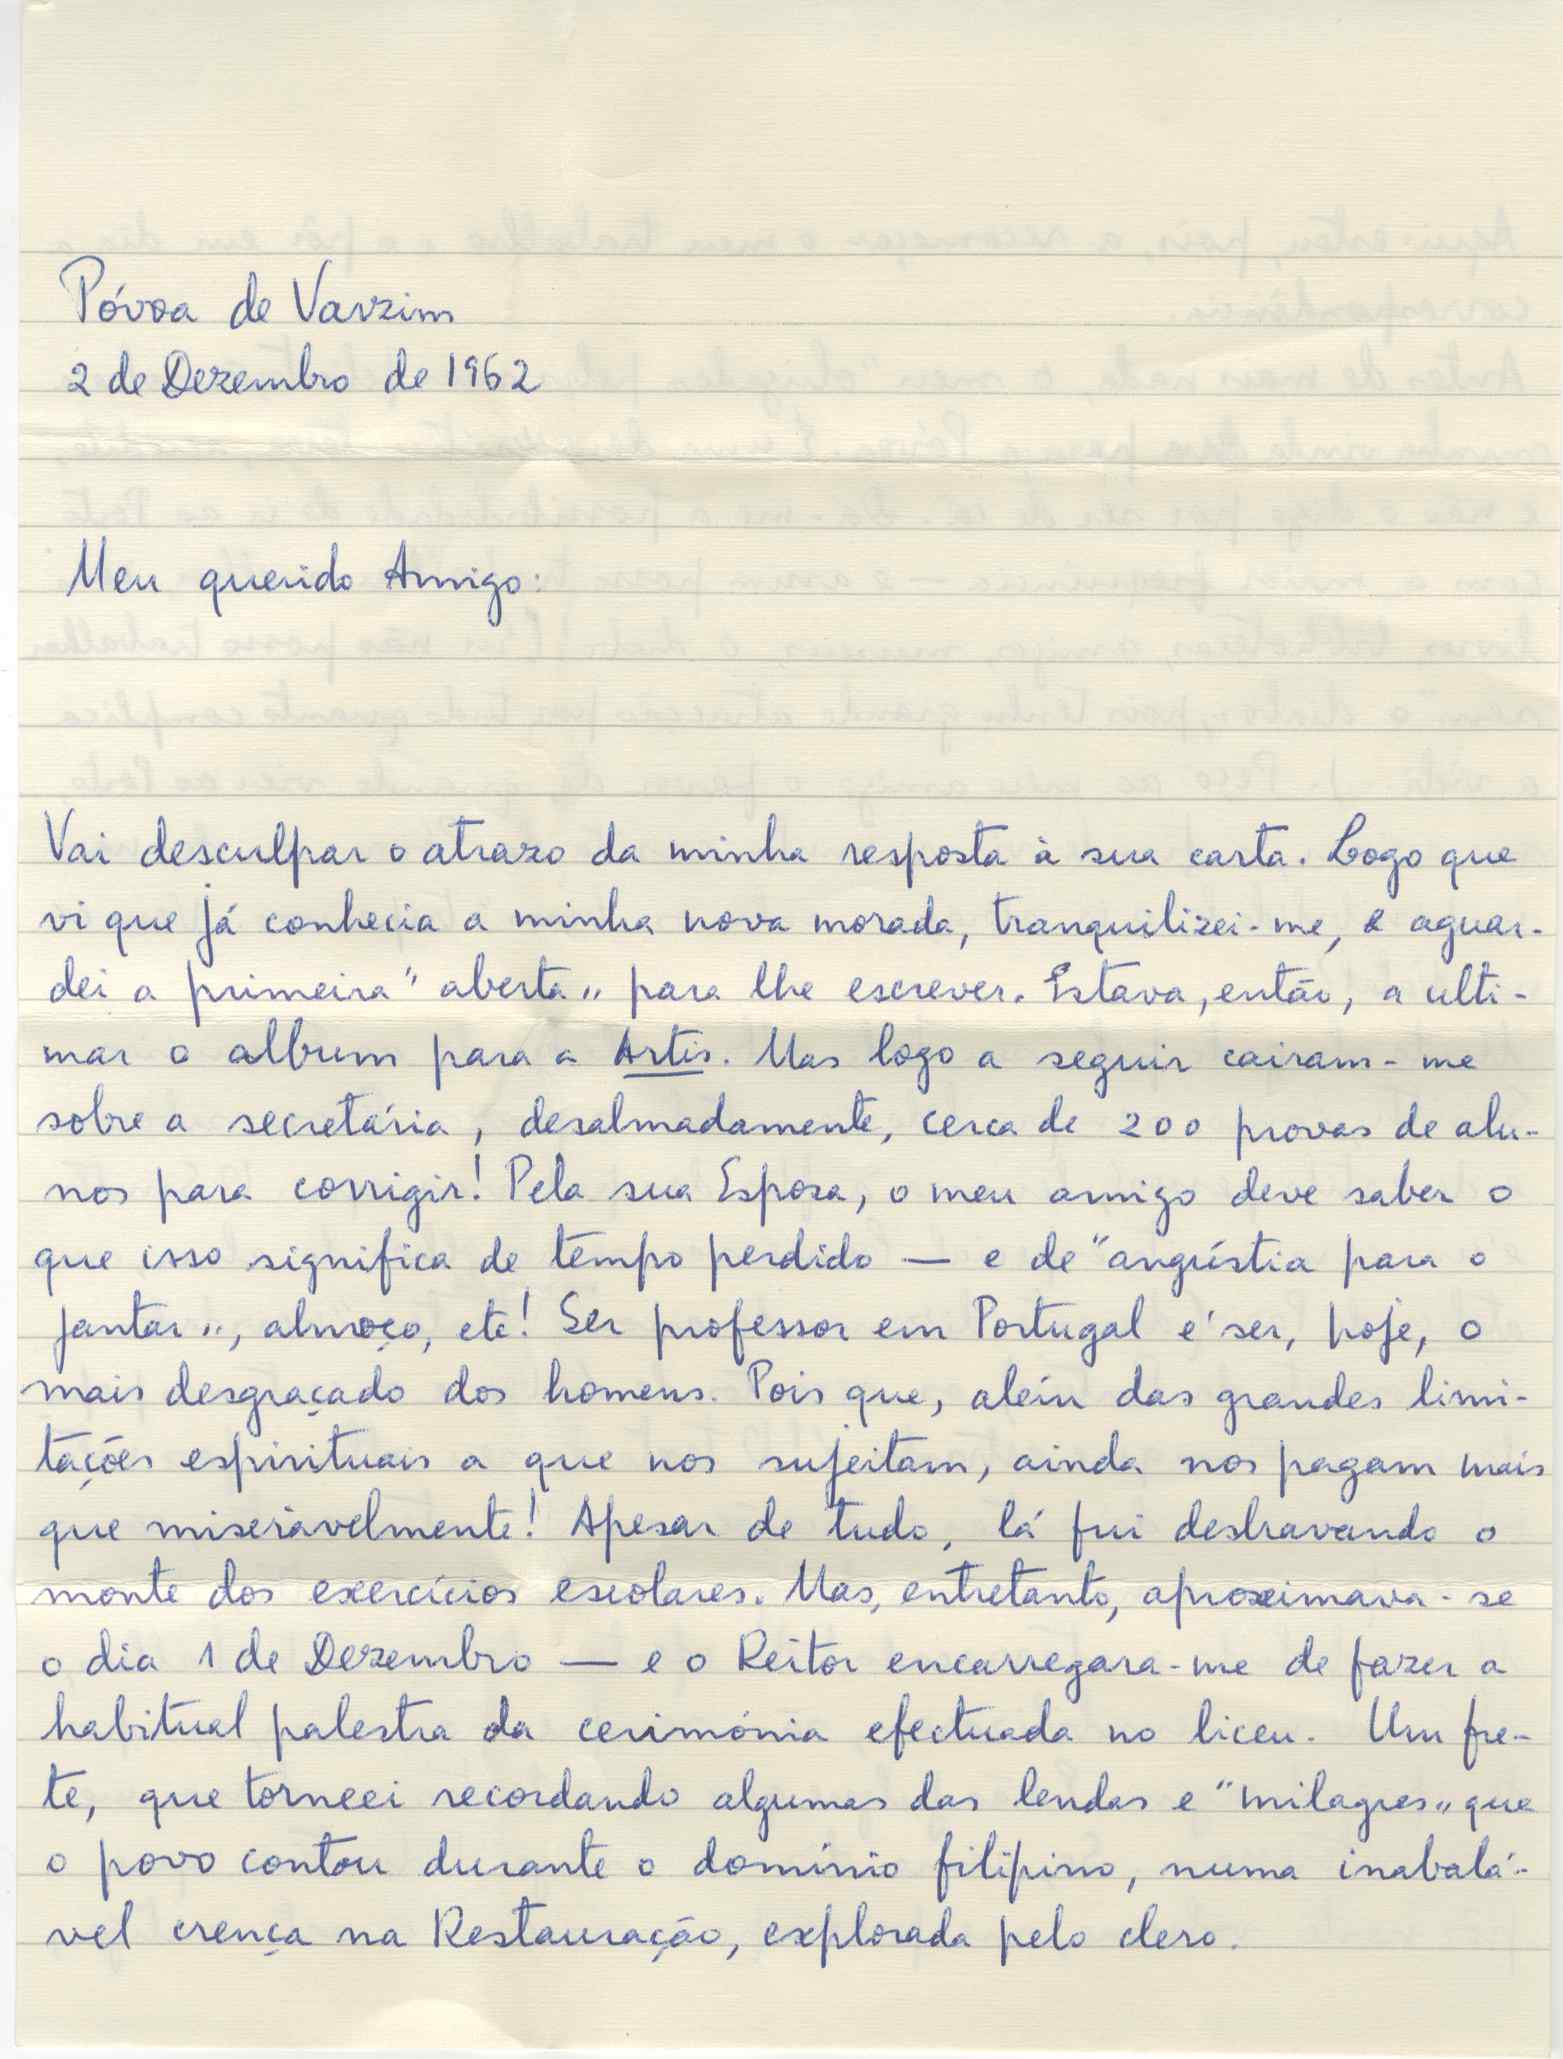 Póvoa de Varzim
2 de Dezembro de 1962
Meu querido Amigo:
Vai desculpar o atrazo da minha resposta à sua carta. Logo que
vi que já conhecia a minha nova morada, tranquilizei-me, e aguar-
dei a primeira "aberta" para lhe escrever. Estava, então, a ulti-
mar o album para a Artis. Mas logo a seguir cairam-me
sobre a secretária, desalmadamente, cerca de 200 provas de alu-
nos para corrigir! Pela sua Esposa, o meu amigo deve saber o
que isso significa de tempo perdido — e de "angústia para o
jantar", almoço, etc! Ser professor em Portugal é ser, hoje, o
mais desgraçado dos homens. Pois que, além das grandes limi-
tações espirituais a que nos sujeitam, ainda nos pagam mais
que miseràvelmente! Apesar de tudo, lá fui desbravando o
monte dos exercícios escolares. Mas, entretanto, aproximava-se
o dia 1 de Dezembro — e o Reitor encarregara-me de fazer a
habitual palestra da cerimónia efectuada no liceu. Um fre-
te, que torneei recordando algumas das lendas e "milagres" que
o povo contou durante o domínio filipino, numa inabalá-
vel crença na Restauração, explorada pelo clero.